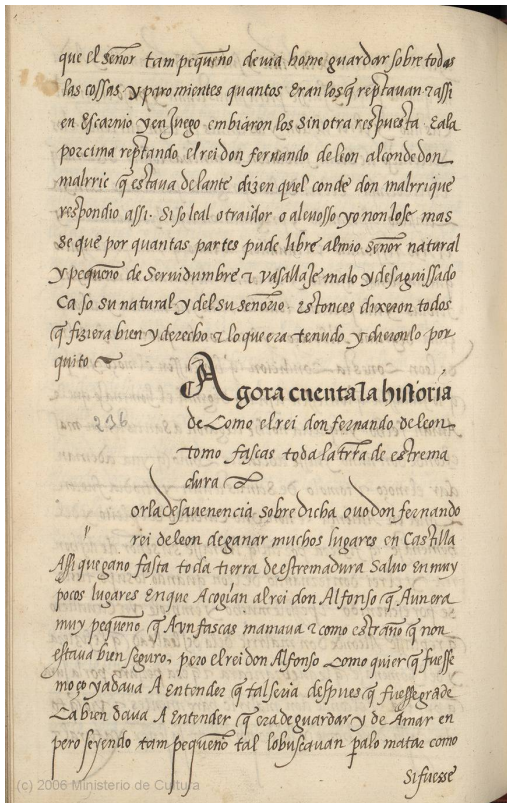 que el señor tam pequeño devia home guardar sobre todas
las cossas · y paro mientes quantos eran los q̃ reptavan · ⁊ assi
en escarnio y en Juego embiaron los sin otra respuesta · E ala
por cima reptando el rei don fernando de leon al conde don
malrric q̃ estava delante dizen quel conde don malrrique
respondio assi · Si so leal o traidor o alevosso yo non lo se mas
se que por quantas partes pude libre al mio señor natural
y pequeño de Servidumbre ⁊ vasallaje malo y desaguissado
Ca so su natural y del su señorio · Estonces dixeron todos
q̃ fiziera bien y derecho ⁊ lo que era tenudo y dieronlo por
quito
Agora cuenta la historia
de Como el rei don fernando de leon
tomo fascas toda la trr̃a de estrema
dura
or la desavenencia sobre dicha ovo don fernando
rei de leon de ganar muchos lugares en Castilla
Assi que gano fasta toda tierra de estremadura Salvo en muy
pocos lugares En que Acogian al rei don Alfonso q̃ Aun era
muy pequeño q̃ Ayn fascas mamava ⁊ como estraño q̃ non
estava bien seguro, pero el rei don Alfonso Como quier q̃ fuesse
moço ya dava A entender q̃ tal seria despues q̃ fuesse grãde
Ca bien dava A Entender q̃ era de guardar y de Amar en
pero seyendo tam pequeño tal lo buscavan pᵃlo matar como
si fuesse
236
(c) 2006 Ministerio de Cultura